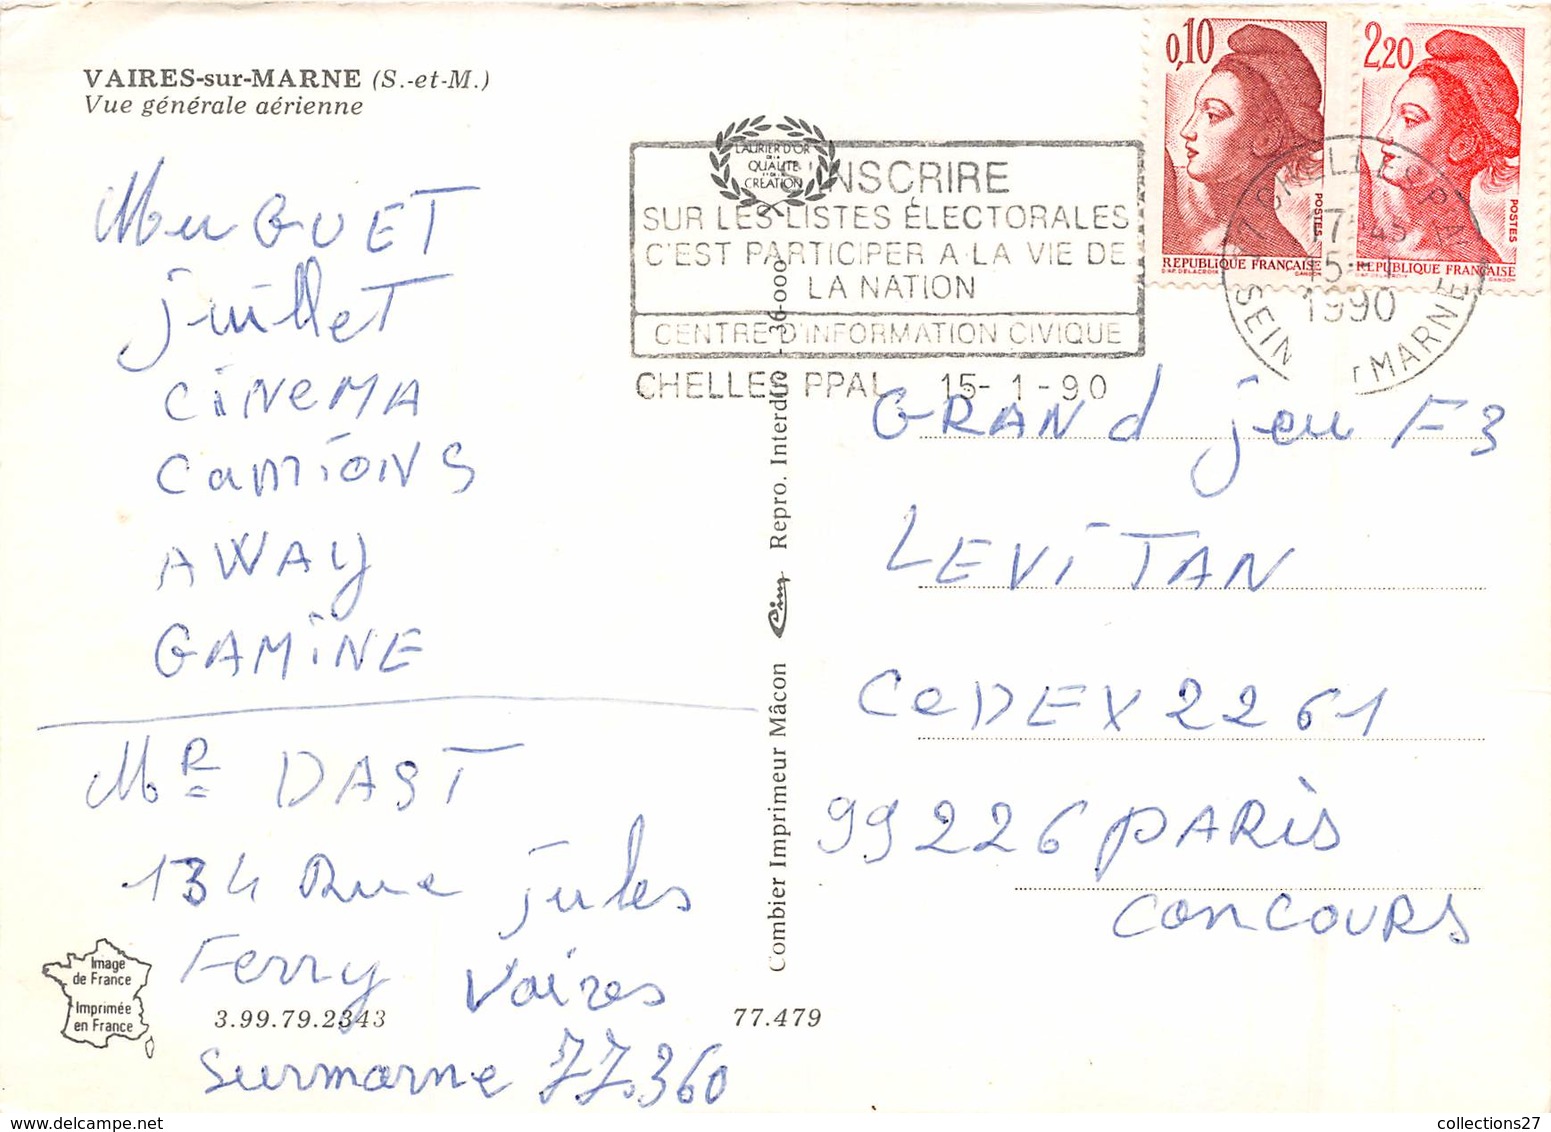 VAIRES-sur-MARNE (S.-et-M.)
Vue générale aérienne
MuGUET
juillet
CiNeMA
CamionS
AWAy
GAMiNE
MR DAST
134 Rue jules
Ferry Vaires
surmarne 77.360
Image
de France
Imprimée
en France
3.99.79.2343
77.479
Combier Imprimeur Mâcon Cim Repro. Interdite - 36-000
LAURIER D'OR
DE LA
QUALITE
DE LA
CREATION
S'INSCRIRE
SUR LES LISTES ÉLECTORALES
C'EST PARTICIPER A LA VIE DE
LA NATION
CENTRE D'INFORMATION CIVIQUE
CHELLES PPAL 15-1-90
0,10
POSTES
REPUBLIQUE FRANÇAISE
D'AP. DELACROIX GANDON
2,20
POSTES
REPUBLIQUE FRANÇAISE
D'AP. DELACROIX GANDON
77 CHELLES PPAL
17 45
15-1
1990
SEINE ET MARNE
GRANd jeu F3
LEViTAN
CeDEX 2261
99226 PARiS
CONCOURS
collections27